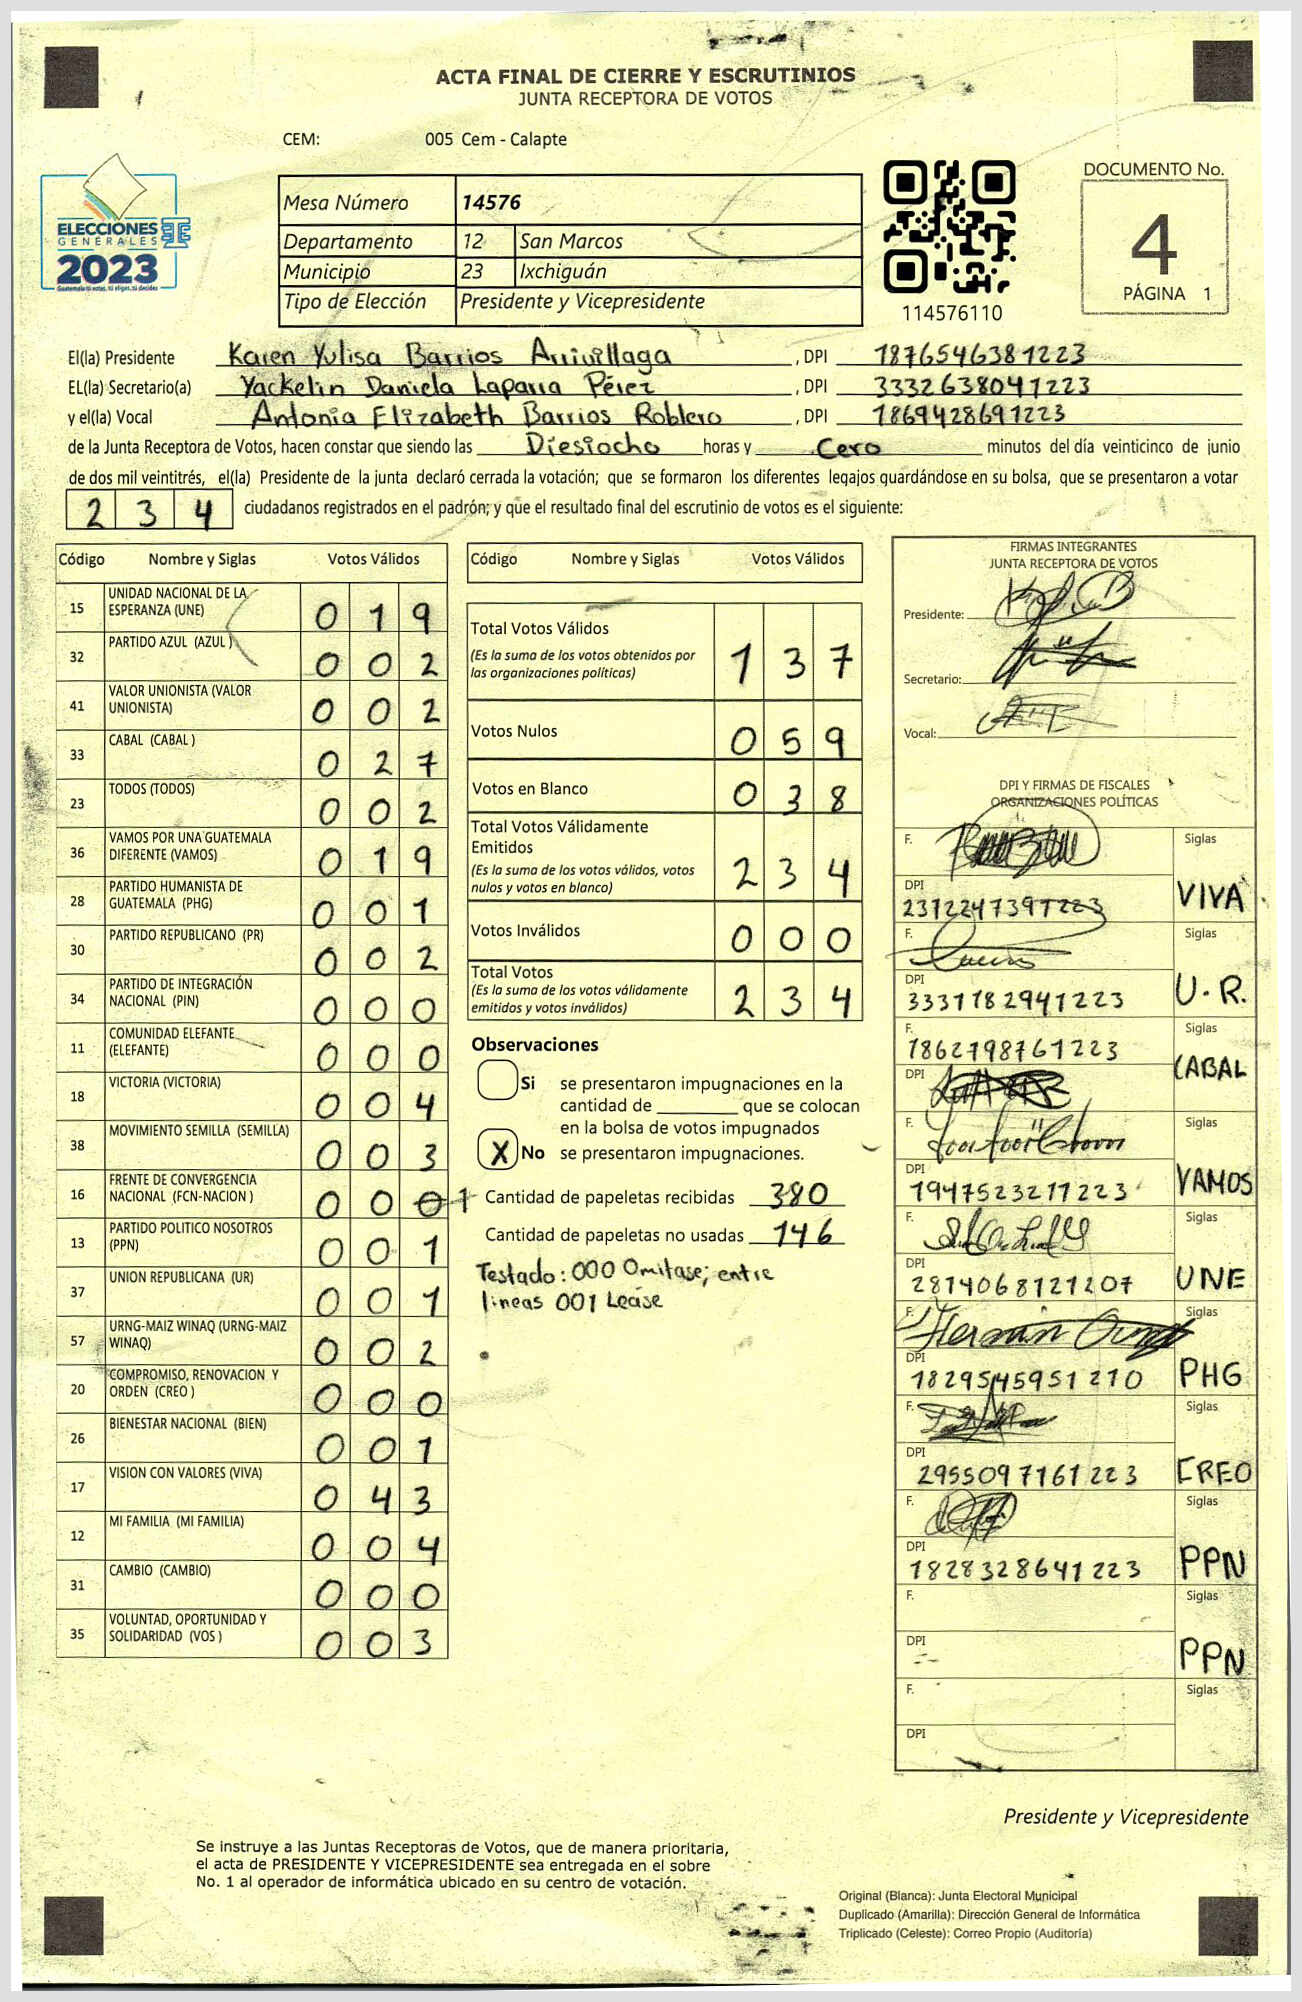 ACTA FINAL DE CIERRE Y ESCRUTINIOS
JUNTA RECEPTORA DE VOTOS
CEM: 005 Cem - Calapte
ELECCIONES
GENERALES
2023
Guatemala tú votas, tú eliges, tú decides
Mesa Número 14576
Departamento 12 San Marcos
Municipio 23 Ixchiguán
Tipo de Elección Presidente y Vicepresidente
114576110
DOCUMENTO No.
4
PÁGINA 1
El(la) Presidente Karen Yulisa Barrios Arrivillaga , DPI 1876546381223
EL(la) Secretario(a) Yackelin Daniela Laparra Pérez , DPI 3332638041223
y el(la) Vocal Antonia Elizabeth Barrios Roblero , DPI 1869428691223
de la Junta Receptora de Votos, hacen constar que siendo las Diesiocho horas y Cero minutos del día veinticinco de junio
de dos mil veintitrés, el(la) Presidente de la junta declaró cerrada la votación; que se formaron los diferentes legajos guardándose en su bolsa, que se presentaron a votar
2 3 4 ciudadanos registrados en el padrón; y que el resultado final del escrutinio de votos es el siguiente:
Código Nombre y Siglas Votos Válidos
15 UNIDAD NACIONAL DE LA ESPERANZA (UNE) 0 1 9
32 PARTIDO AZUL (AZUL ) 0 0 2
41 VALOR UNIONISTA (VALOR UNIONISTA) 0 0 2
33 CABAL (CABAL ) 0 2 7
23 TODOS (TODOS) 0 0 2
36 VAMOS POR UNA GUATEMALA DIFERENTE (VAMOS) 0 1 9
28 PARTIDO HUMANISTA DE GUATEMALA (PHG) 0 0 1
30 PARTIDO REPUBLICANO (PR) 0 0 2
34 PARTIDO DE INTEGRACIÓN NACIONAL (PIN) 0 0 0
11 COMUNIDAD ELEFANTE (ELEFANTE) 0 0 0
18 VICTORIA (VICTORIA) 0 0 4
38 MOVIMIENTO SEMILLA (SEMILLA) 0 0 3
16 FRENTE DE CONVERGENCIA NACIONAL (FCN-NACION ) 0 0 0 1
13 PARTIDO POLITICO NOSOTROS (PPN) 0 0 1
37 UNION REPUBLICANA (UR) 0 0 1
57 URNG-MAIZ WINAQ (URNG-MAIZ WINAQ) 0 0 2
20 COMPROMISO, RENOVACION Y ORDEN (CREO ) 0 0 0
26 BIENESTAR NACIONAL (BIEN) 0 0 1
17 VISION CON VALORES (VIVA) 0 4 3
12 MI FAMILIA (MI FAMILIA) 0 0 4
31 CAMBIO (CAMBIO) 0 0 0
35 VOLUNTAD, OPORTUNIDAD Y SOLIDARIDAD (VOS ) 0 0 3
Código Nombre y Siglas Votos Válidos
Total Votos Válidos 1 3 7
(Es la suma de los votos obtenidos por
las organizaciones políticas)
Votos Nulos 0 5 9
Votos en Blanco 0 3 8
Total Votos Válidamente
Emitidos 2 3 4
(Es la suma de los votos válidos, votos
nulos y votos en blanco)
Votos Inválidos 0 0 0
Total Votos 2 3 4
(Es la suma de los votos válidamente
emitidos y votos inválidos)
Observaciones
Si se presentaron impugnaciones en la
cantidad de ________ que se colocan
en la bolsa de votos impugnados
X No se presentaron impugnaciones.
Cantidad de papeletas recibidas 380
Cantidad de papeletas no usadas 146
Testado: 000 Omitase; entre
lineas 001 Lease
FIRMAS INTEGRANTES
JUNTA RECEPTORA DE VOTOS
Presidente:
Secretario:
Vocal:
DPI Y FIRMAS DE FISCALES
ORGANIZACIONES POLÍTICAS
F. Siglas
DPI 2312247397223 VIVA
F. Siglas
DPI 3331782941223 U.R.
F. 1862798761223 Siglas
DPI CABAL
F. Siglas
DPI 1947523211223 VAMOS
F. Siglas
DPI 2814068121207 UNE
F. Siglas
DPI 1829545951210 PHG
F. Siglas
DPI 2955097161223 CREO
F. Siglas
DPI 1828328641223 PPN
F. Siglas
DPI PPN
F. Siglas
DPI
Presidente y Vicepresidente
Se instruye a las Juntas Receptoras de Votos, que de manera prioritaria,
el acta de PRESIDENTE Y VICEPRESIDENTE sea entregada en el sobre
No. 1 al operador de informática ubicado en su centro de votación.
Original (Blanca): Junta Electoral Municipal
Duplicado (Amarilla): Dirección General de Informática
Triplicado (Celeste): Correo Propio (Auditoría)